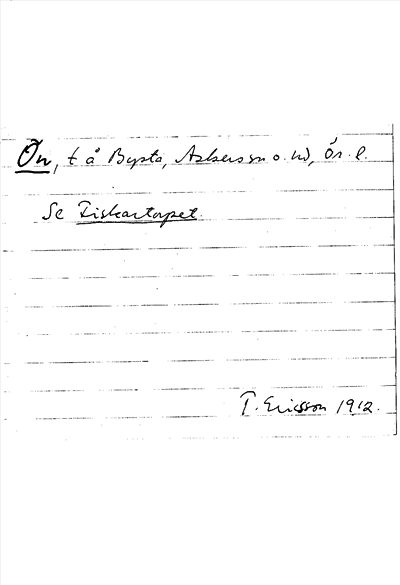 Ön, t å Bysta, Askers sn o. hd, Ör. l.
Se Fiskartorpet.
T. Ericsson 1912.